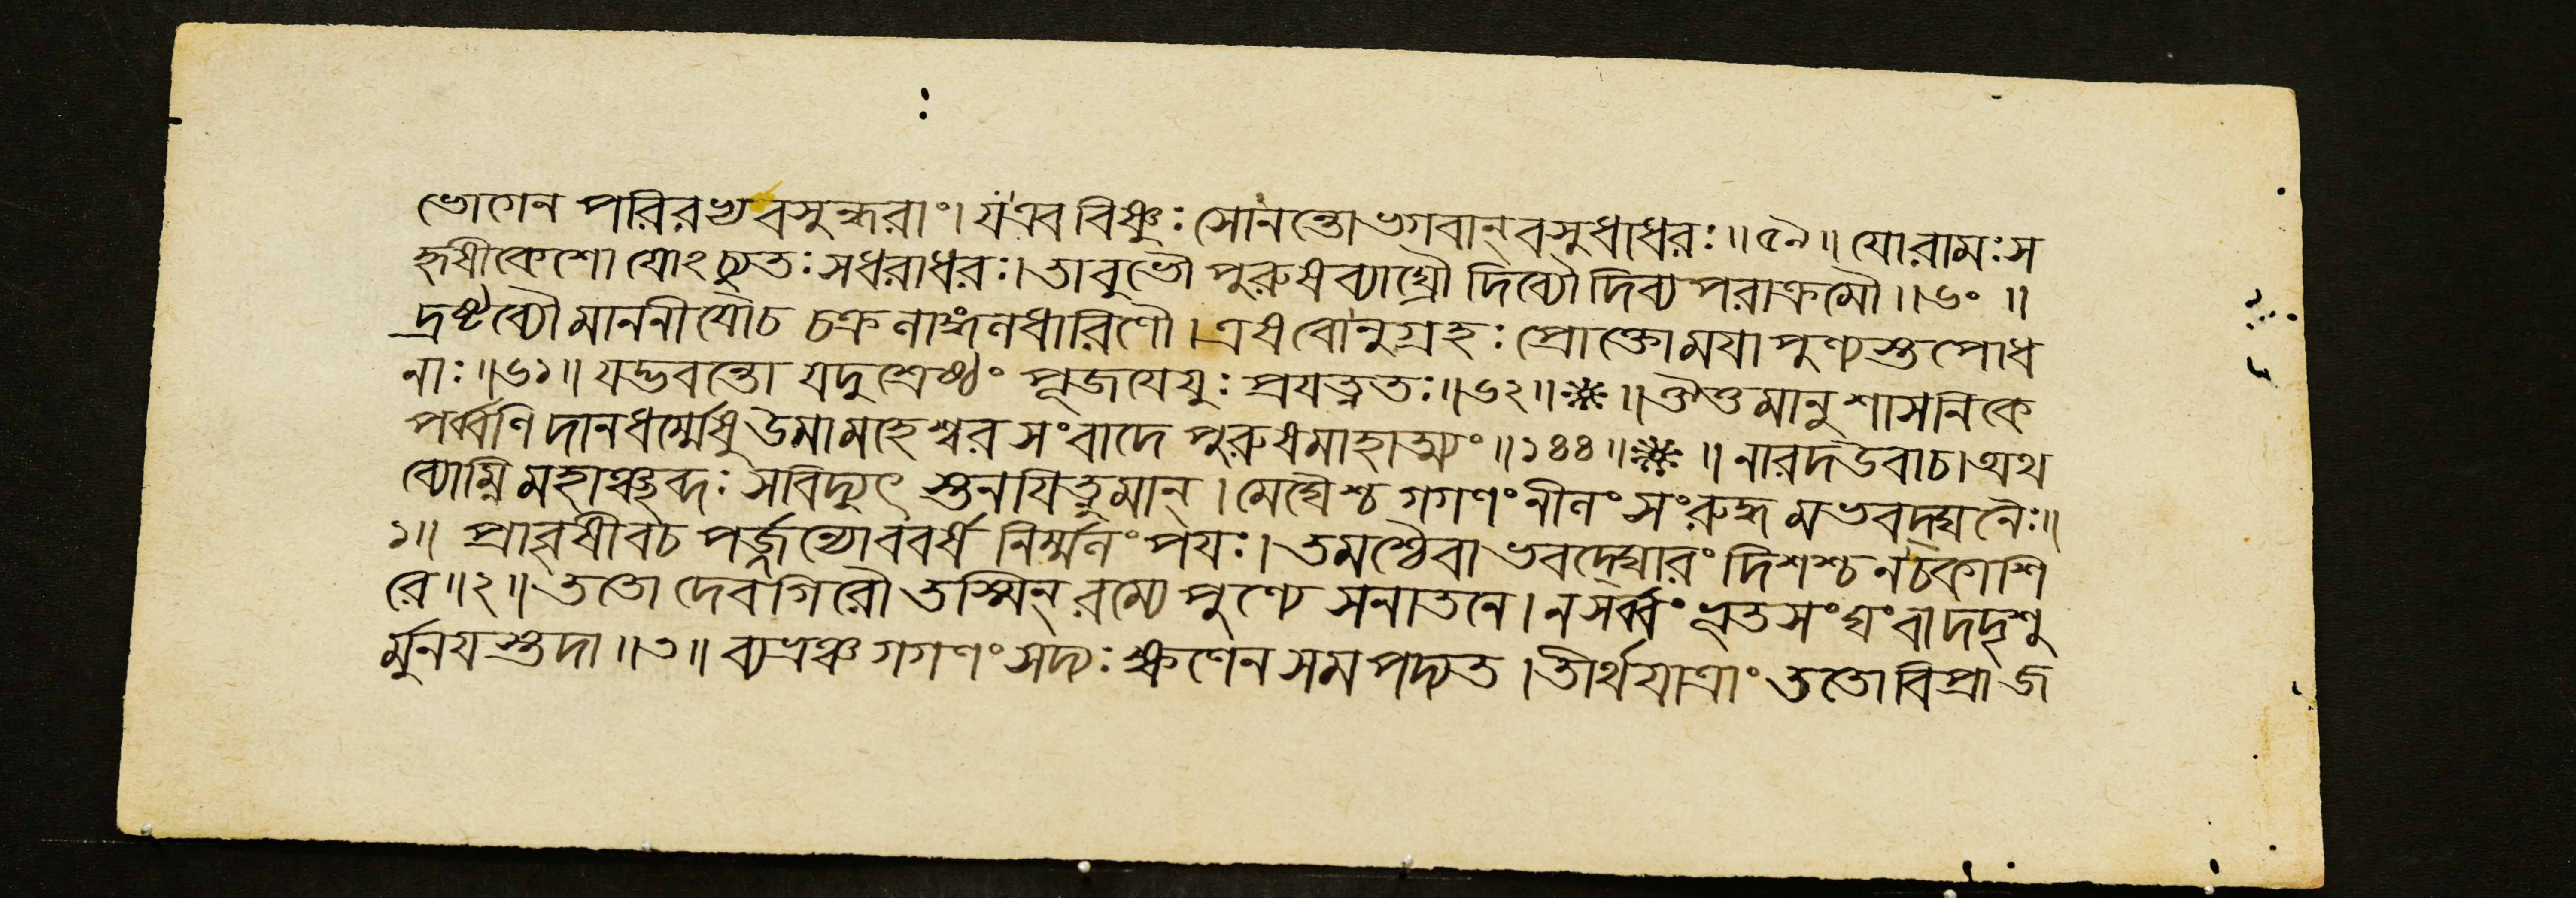 ভোগেন পরিরভ্য বসুন্ধরাং। যএব বিষ্ণুঃ সোনন্তো ভগবান্ বসুধাধরঃ॥৫৯॥ যো রামঃ স
হৃষীকেশো যোঽচ্যুতঃ সধরাধরঃ। তাবুভৌ পুরুষব্যাঘ্রৌ দিব্যৌ দিব্যপরাক্রমৌ॥৬০॥
দ্রষ্টব্যৌ মাননীযৌচ চক্রলাঙ্গলধারিণৌ। এষবোনুগ্রহঃ প্রোক্তো মযা পুণ্যস্তপোধ
নাঃ॥৬১॥ যদ্ভবন্তো যদুশ্রেষ্ঠং পূজযেযুঃ প্রযত্নতঃ॥৬২॥※॥ ঔত্তমানুশাসনিকে
পর্ব্বণি দানধর্ম্মেষু উমামহেশ্বর সংবাদে পুরুষমাহাত্ম্যং॥১৪৪॥※॥ নারদউবাচ। অথ
ব্যোম্নি মহাঞ্ছব্দঃ সবিদ্যুৎ স্তনযিত্নুমান্। মেঘৈশ্চ গগণং নীলং সংরুদ্ধমভবদ্ঘনৈঃ॥
১॥ প্রাবৃষীবচ পর্জ্জন্যো ববর্ষ নির্ম্মলং পযঃ। তমশ্চৈবাভবদ্ঘোরং দিশশ্চ নচকাশি
রে॥২॥ ততো দেবগিরৌ তস্মিন্ রম্যে পুণ্যে সনাতনে। ন সর্ব্বং ভূতসংঘং বা দদৃশু
র্মুনযস্তদা॥৩॥ ব্যভ্রঞ্চ গগণং সদ্যঃ ক্ষণেন সমপদ্যত। তীর্থযাত্রাং ততো বিপ্রা জ